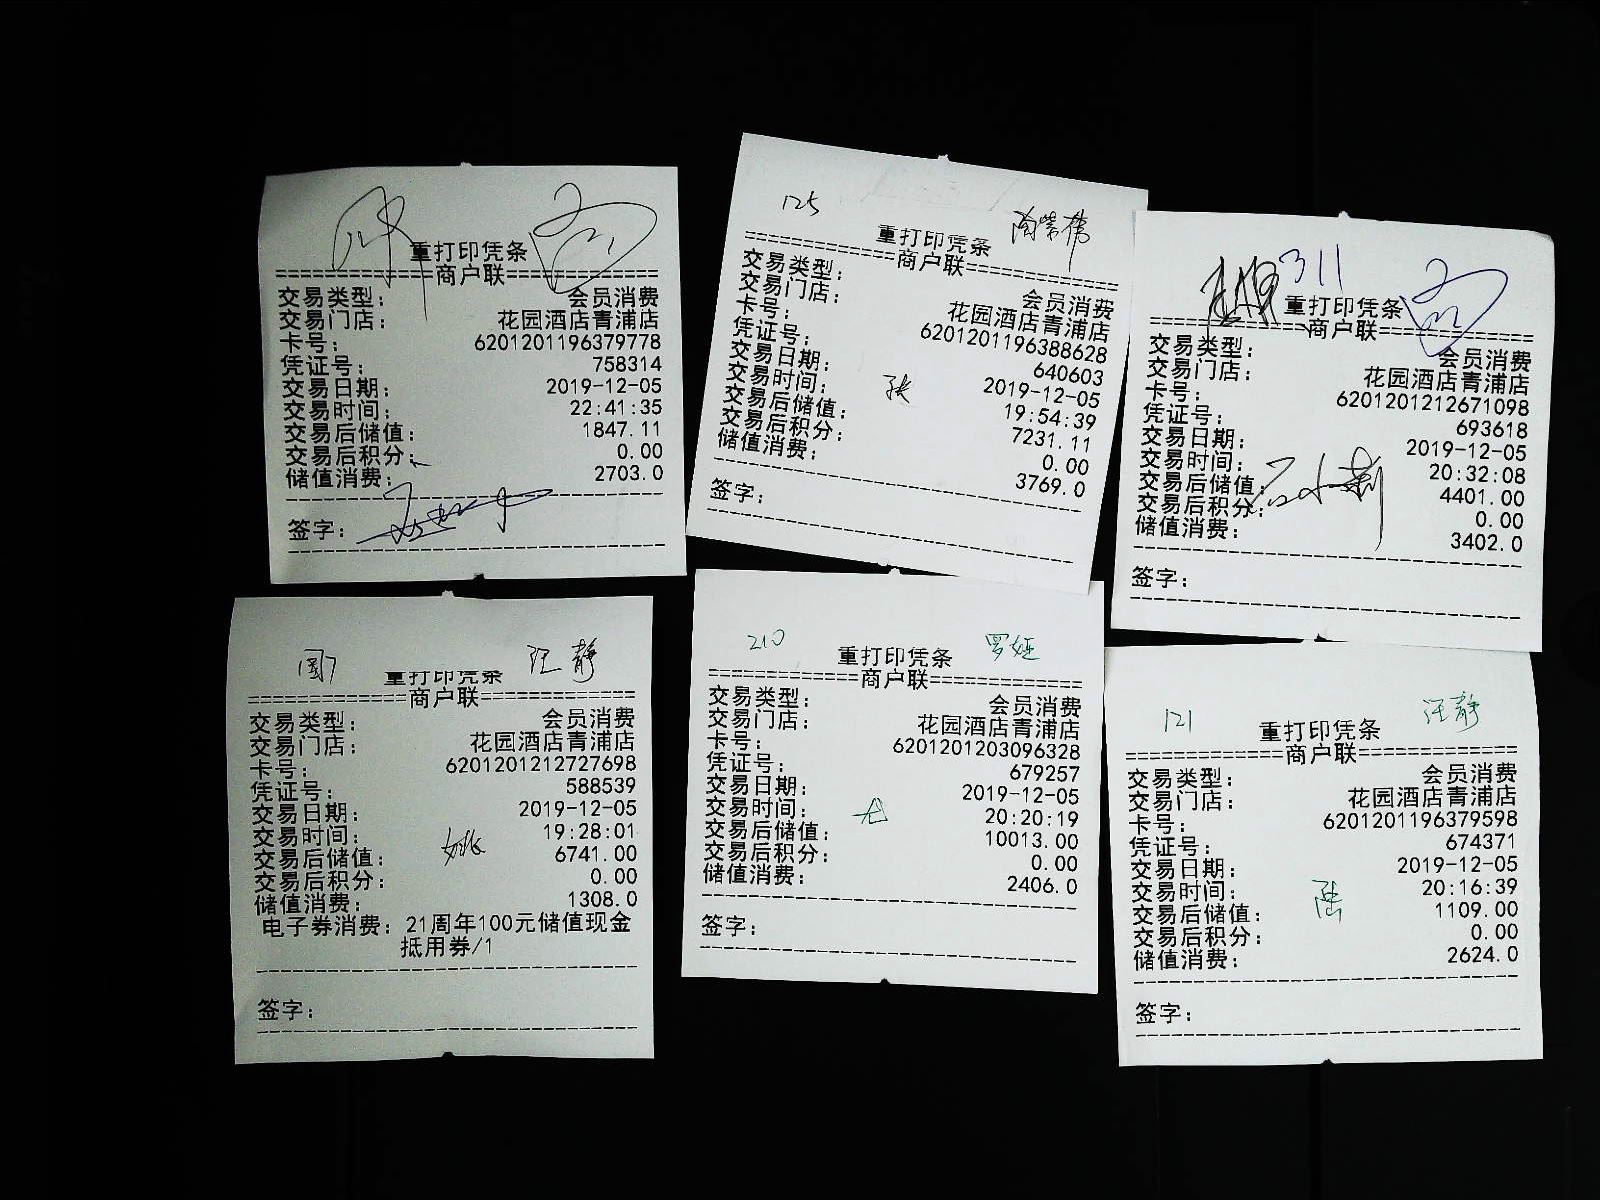 重打印凭条
================商户联================
交易类型： 会员消费
交易门店： 花园酒店青浦店
卡号： 6201201196379778
凭证号： 758314
交易日期： 2019-12-05
交易时间： 22:41:35
交易后储值： 1847.11
交易后积分： 0.00
储值消费： 2703.0
签字：
125 陶常伟
重打印凭条
================商户联================
交易类型： 会员消费
交易门店： 花园酒店青浦店
卡号： 6201201196388628
凭证号： 640603
交易日期： 2019-12-05
交易时间： 19:54:39
张
交易后储值： 7231.11
交易后积分： 0.00
储值消费： 3769.0
签字：
311
重打印凭条
================商户联================
交易类型： 会员消费
交易门店： 花园酒店青浦店
卡号： 6201201212671098
凭证号： 693618
交易日期： 2019-12-05
交易时间： 20:32:08
交易后储值： 4401.00
交易后积分： 0.00
储值消费： 3402.0
签字：
汪静
重打印凭条
================商户联================
交易类型： 会员消费
交易门店： 花园酒店青浦店
卡号： 6201201212727698
凭证号： 588539
交易日期： 2019-12-05
交易时间： 19:28:01
姚
交易后储值： 6741.00
交易后积分： 0.00
储值消费： 1308.0
电子券消费：21周年100元储值现金
抵用券/1
签字：
210
重打印凭条
================商户联================
交易类型： 会员消费
交易门店： 花园酒店青浦店
卡号： 6201201203096328
凭证号： 679257
交易日期： 2019-12-05
交易时间： 20:20:19
交易后储值： 10013.00
交易后积分： 0.00
储值消费： 2406.0
签字：
121 汪静
重打印凭条
================商户联================
交易类型： 会员消费
交易门店： 花园酒店青浦店
卡号： 6201201196379598
凭证号： 674371
交易日期： 2019-12-05
交易时间： 20:16:39
陆
交易后储值： 1109.00
交易后积分： 0.00
储值消费： 2624.0
签字：